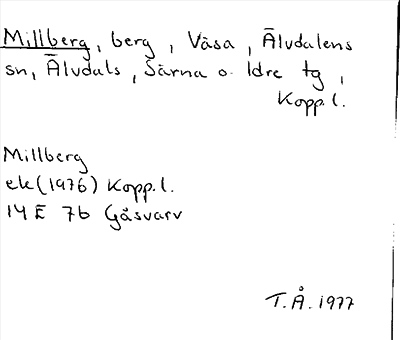 Millberg, berg, Våsa, Älvdalens
sn, Älvdals, Särna o. Idre tg,
Kopp.l.
Millberg
ek (1976) Kopp.l.
14 E 7b Gåsvarv
T.Å. 1977